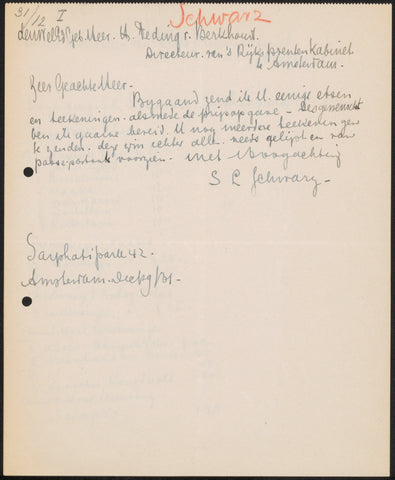 31/12 I
Schwarz
den WelEdelgeb. Heer. Th. Reding v. Berkhout.
Directeur van 's Rijks Prentenkabinet
te Amsterdam.
Zeer Geachte Heer.
Bijgaand zend ik U. eenige etsen
en teekeningen. alsmede de prijsopgave - Desgewenscht
ben ik gaarne bereid. U nog meerdere teekeningen
te zenden. deze zijn echter alle. reeds gelijst en van
passe-partouts voorzien. Met Hoogachting
S L Schwarz -
Sarphatipark 42.
Amsterdam. Dec